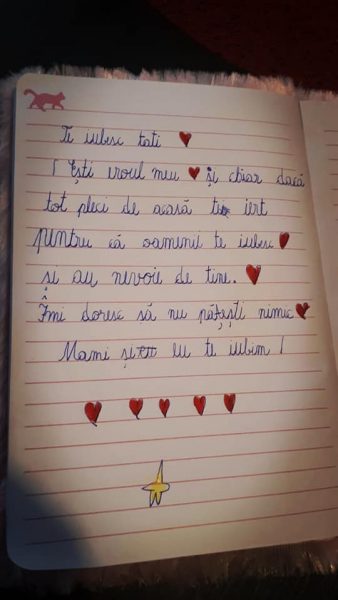 Te iubesc tati ♥
Ești eroul meu ♥ și chiar dacă
tot pleci de acasă te iert
pentru că oamenii te iubesc ♥
și au nevoie de tine. ♥
Îmi doresc să nu pățești nimic ♥
Mami și eu te iubim !